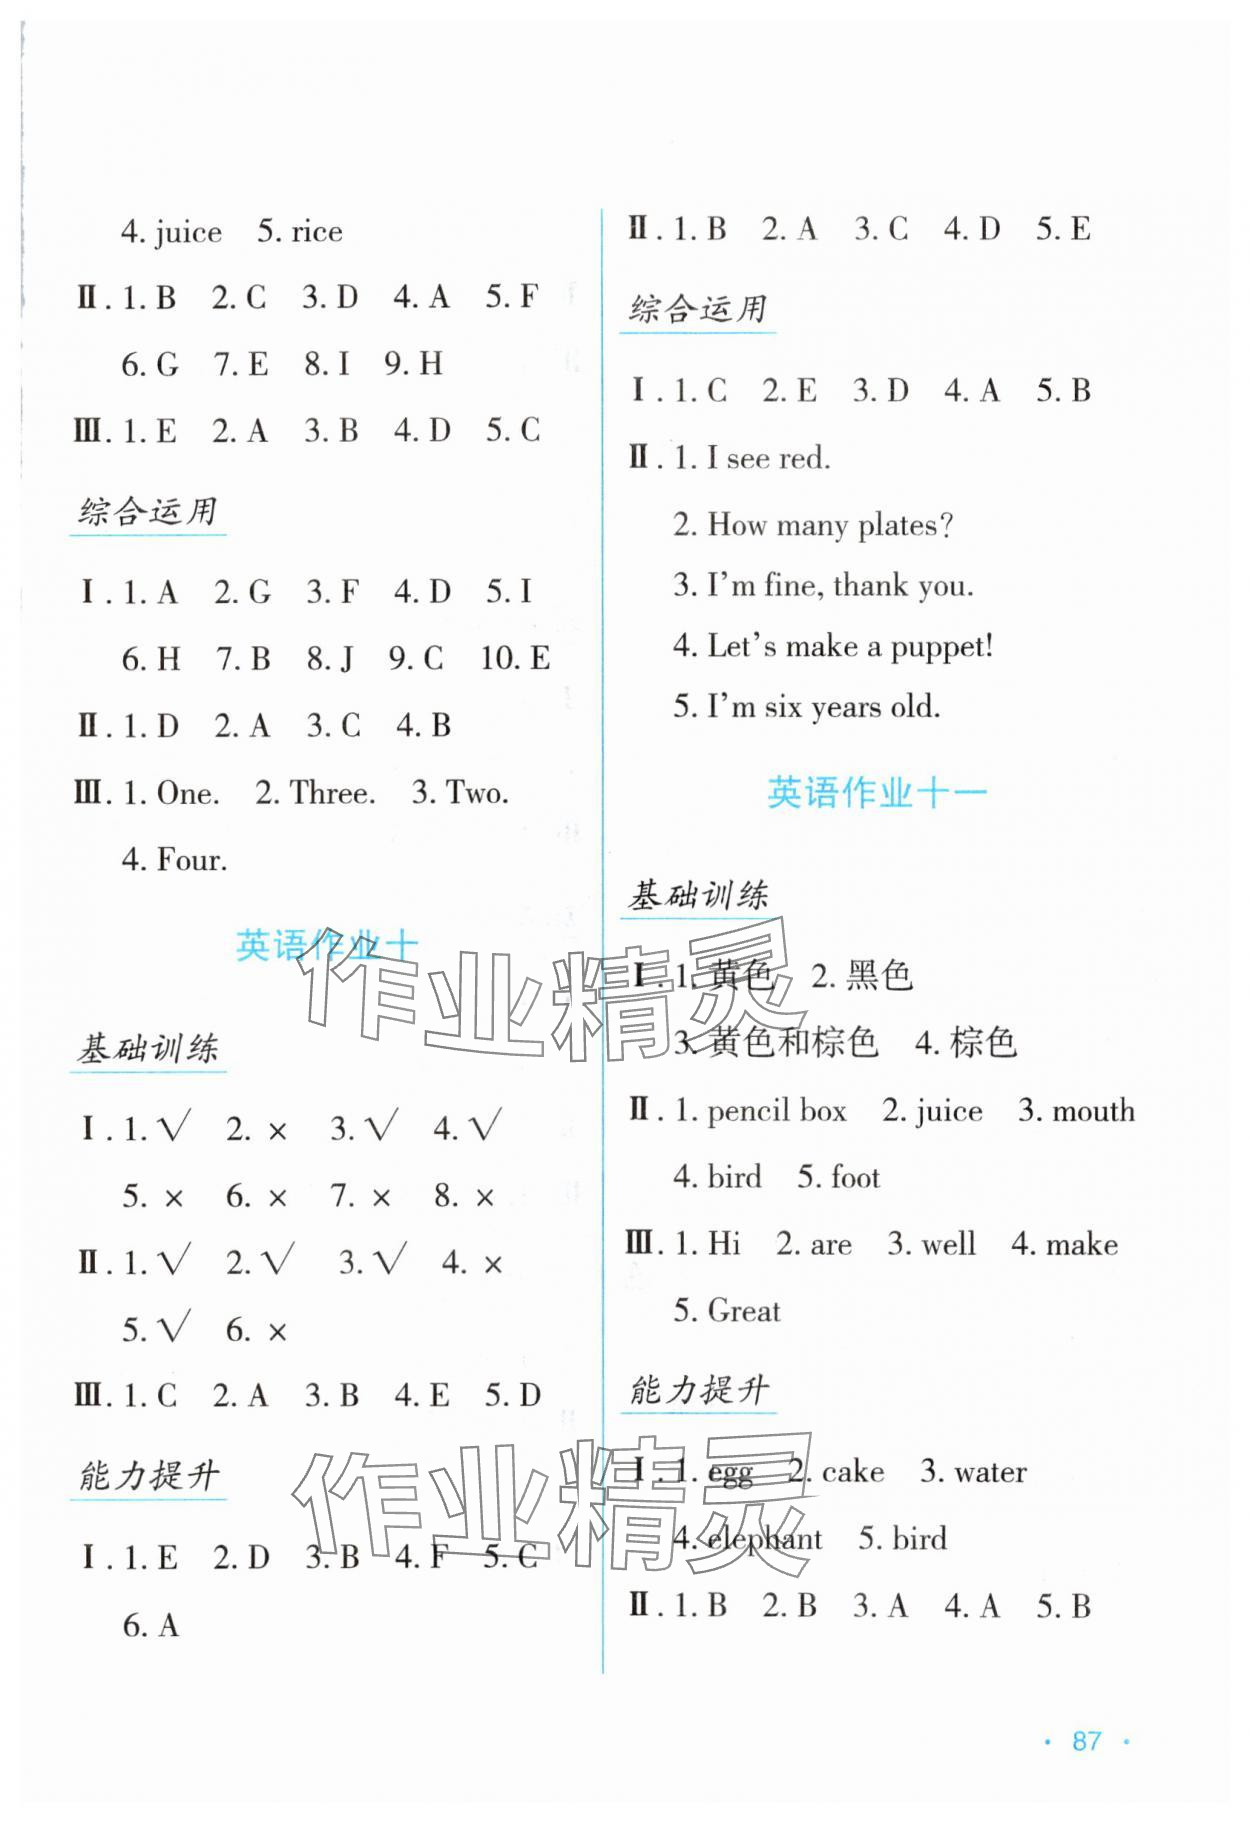 4. juice 5. rice
Ⅱ. 1. B 2. C 3. D 4. A 5. F
6. G 7. E 8. I 9. H
Ⅲ. 1. E 2. A 3. B 4. D 5. C
综合运用
Ⅰ. 1. A 2. G 3. F 4. D 5. I
6. H 7. B 8. J 9. C 10. E
Ⅱ. 1. D 2. A 3. C 4. B
Ⅲ. 1. One. 2. Three. 3. Two.
4. Four.
英语作业十
基础训练
Ⅰ. 1. √ 2. × 3. √ 4. √
5. × 6. × 7. × 8. ×
Ⅱ. 1. √ 2. √ 3. √ 4. ×
5. √ 6. ×
Ⅲ. 1. C 2. A 3. B 4. E 5. D
能力提升
Ⅰ. 1. E 2. D 3. B 4. F 5. C
6. A
Ⅱ. 1. B 2. A 3. C 4. D 5. E
综合运用
Ⅰ. 1. C 2. E 3. D 4. A 5. B
Ⅱ. 1. I see red.
2. How many plates?
3. I'm fine, thank you.
4. Let's make a puppet!
5. I'm six years old.
英语作业十一
基础训练
Ⅰ. 1. 黄色 2. 黑色
3. 黄色和棕色 4. 棕色
Ⅱ. 1. pencil box 2. juice 3. mouth
4. bird 5. foot
Ⅲ. 1. Hi 2. are 3. well 4. make
5. Great
能力提升
Ⅰ. 1. egg 2. cake 3. water
4. elephant 5. bird
Ⅱ. 1. B 2. B 3. A 4. A 5. B
· 87 ·
作业精灵
作业精灵